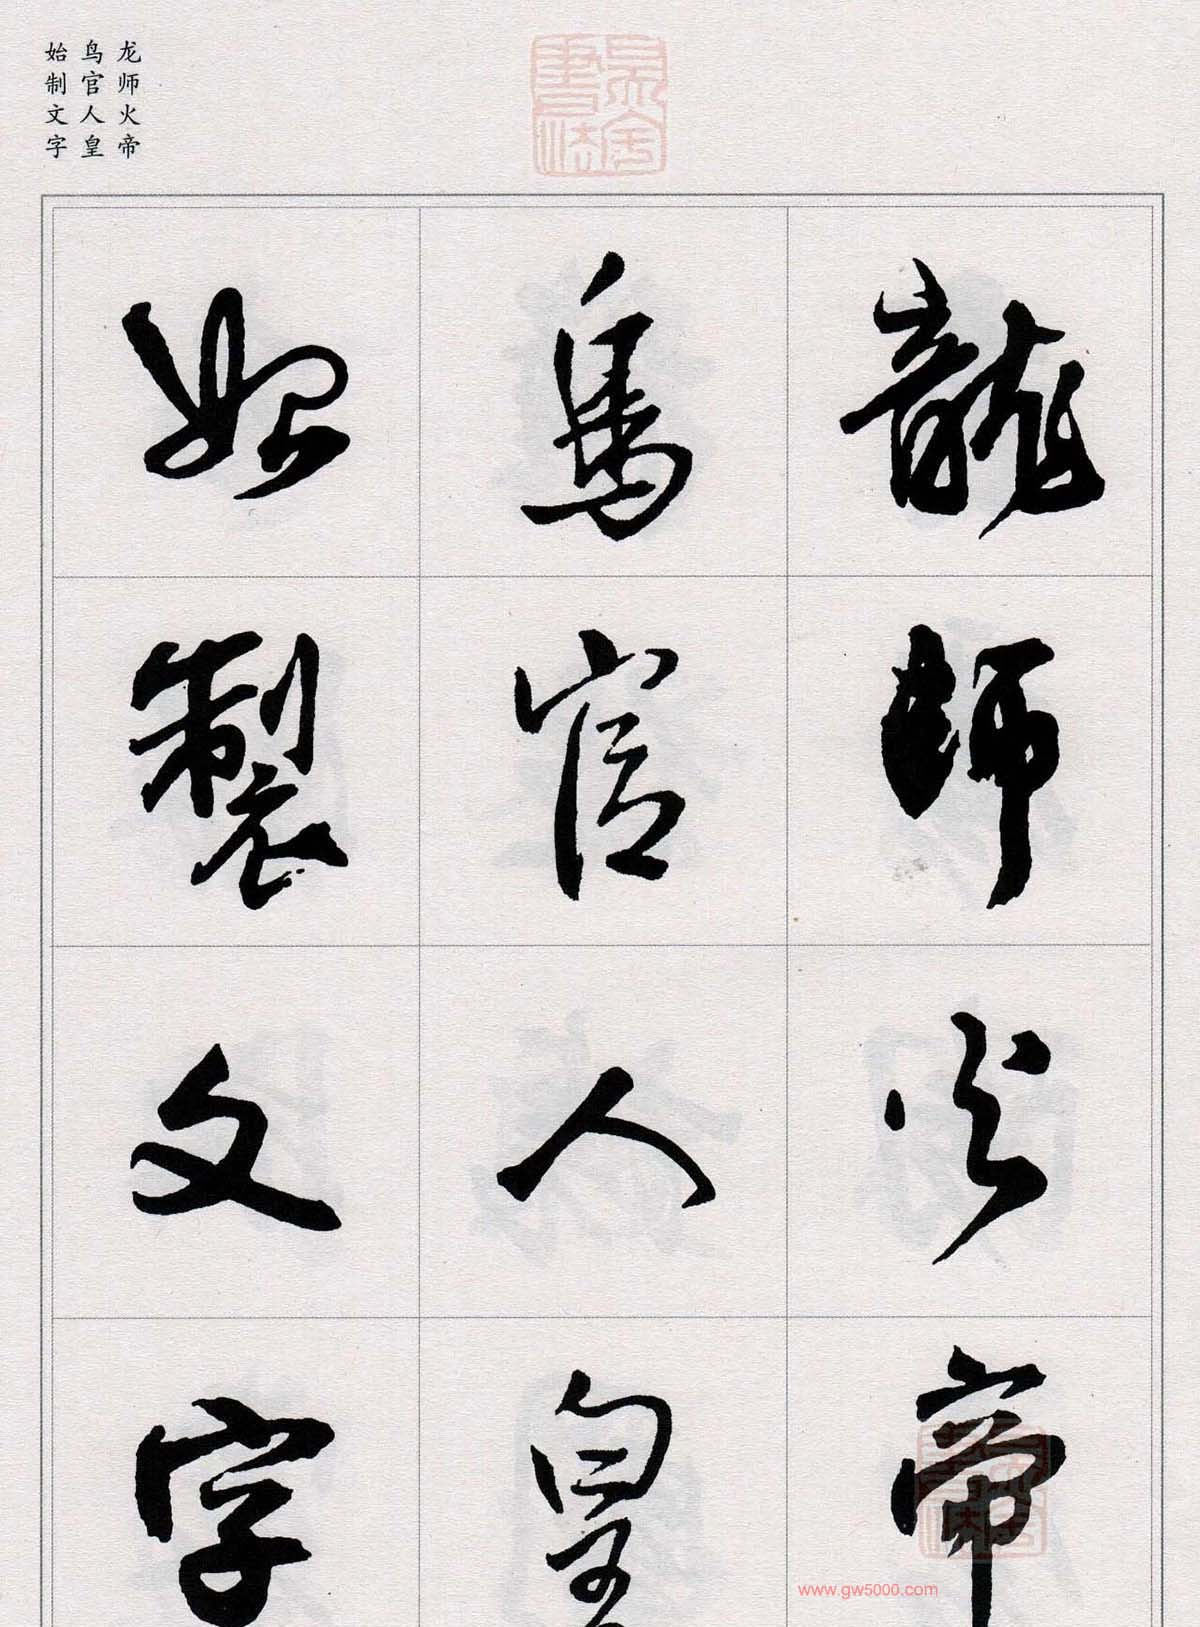 龙师火帝
鸟官人皇
始制文字
龍師火帝
鳥官人皇
始製文字
www.gw5000.com